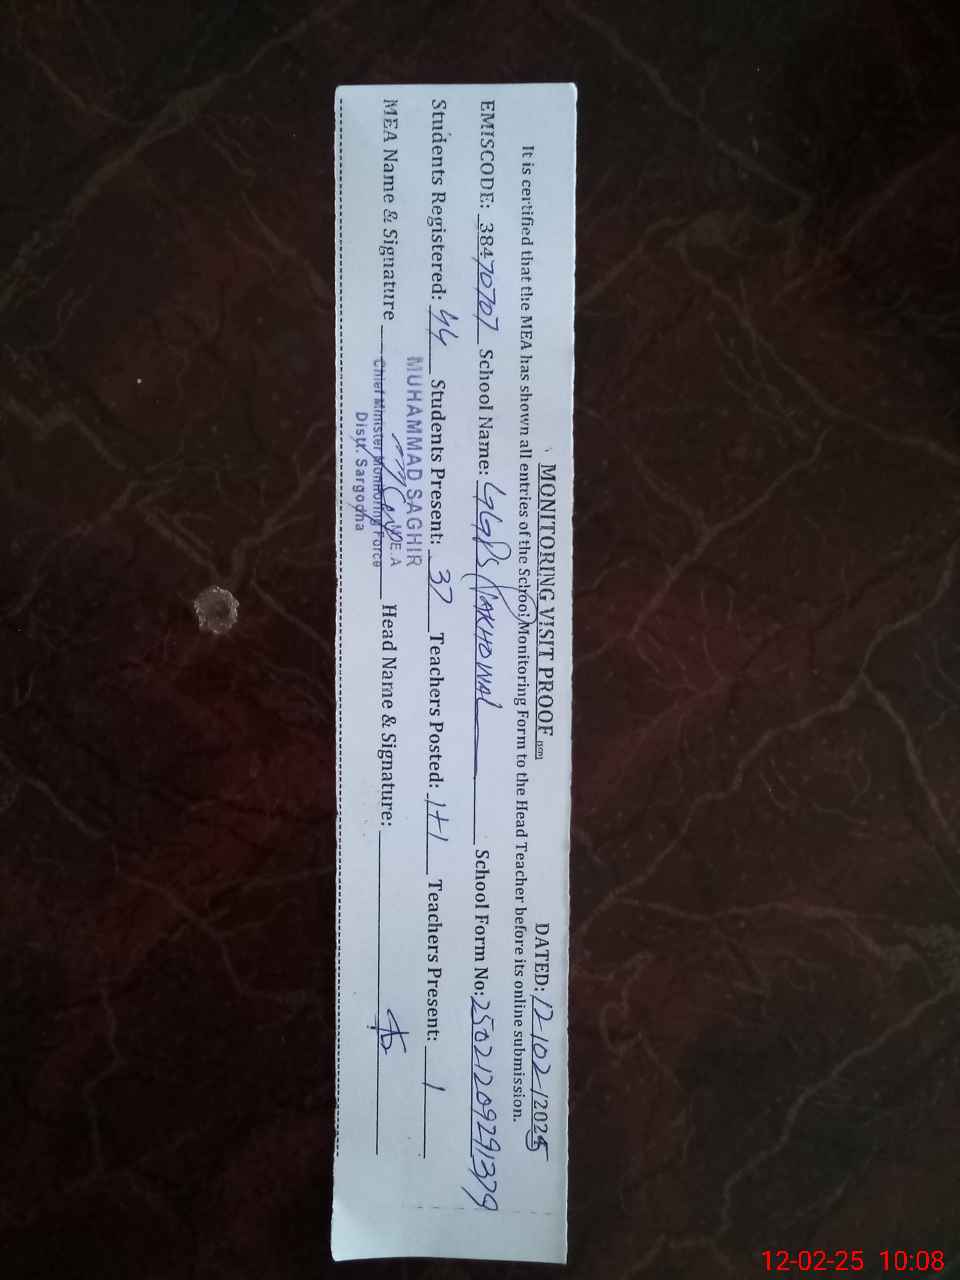 MONITORING VISIT PROOF (SCH) DATED: 12-/02-/2025
It is certified that the MEA has shown all entries of the School Monitoring Form to the Head Teacher before its online submission.
EMISCODE: 38470707 School Name: GGPS CHAKHOWAL School Form No: 25021209291379
Students Registered: 44 Students Present: 37 Teachers Posted: 1+1 Teachers Present: 1
MUHAMMAD SAGHIR
M.E.A
MEA Name & Signature Head Name & Signature:
Chief Minister Monitoring Force
Distt. Sargodha
12-02-25 10:08